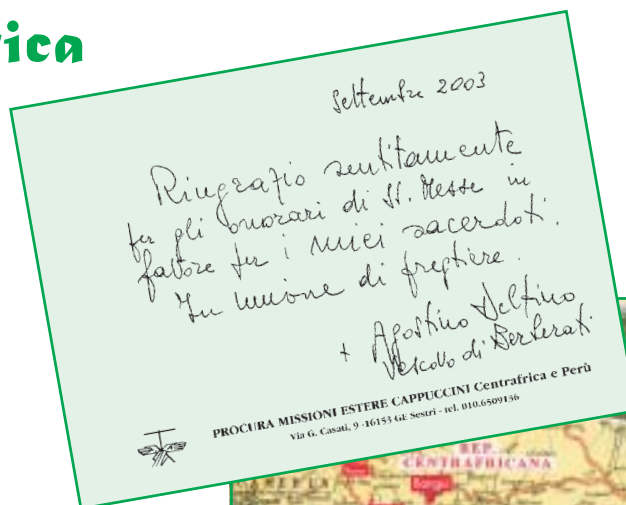 rica
Settembre 2003
Ringrazio sentitamente
per gli onorari di SS. Messe in
favore per i miei sacerdoti.
In unione di preghiere.
+ Agostino Delfino
Vescovo di Berberati
PROCURA MISSIONI ESTERE CAPPUCCINI Centrafrica e Perù
Via G. Casati, 9 -16153 GE Sestri - tel. 010.6509136
REP.
CENTRAFRICANA
Bangui